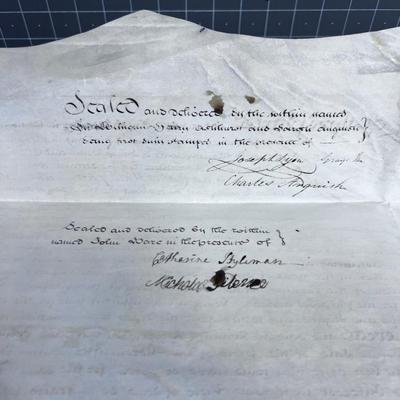 Sealed and delivered by the within named
Sir William Henry Ashhurst and Sarah Anguish
being first duly stampt in the presence of
Joseph Lyon Gray's Inn
Charles Anguish
Sealed and delivered by the within
named John Ware in the presence of
Catherine Styleman
Nicholas